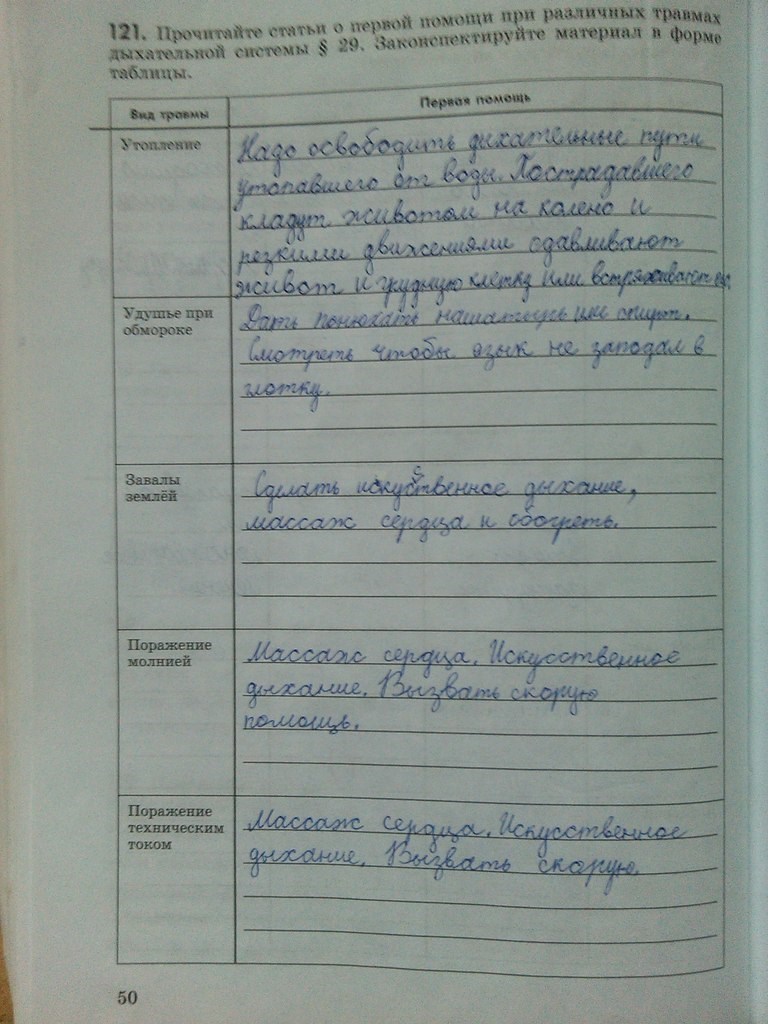 121. Прочитайте статьи о первой помощи при различных травмах
дыхательной системы § 29. Законспектируйте материал в форме
таблицы.
Вид травмы
Первая помощь
Утопление
Надо освободить дыхательные пути
утопавшего от воды. Пострадавшего
кладут животом на колено и
резкими движениями сдавливают
живот и грудную клетку или встряхивают его.
Удушье при
обмороке
Дать понюхать нашатырь или спирт.
Смотреть чтобы язык не западал в
глотку.
Завалы
землёй
Сделать искусственное дыхание,
массаж сердца и обогреть.
Поражение
молнией
Массаж сердца. Искусственное
дыхание. Вызвать скорую
помощь.
Поражение
техническим
током
Массаж сердца. Искусственное
дыхание. Вызвать скорую.
50